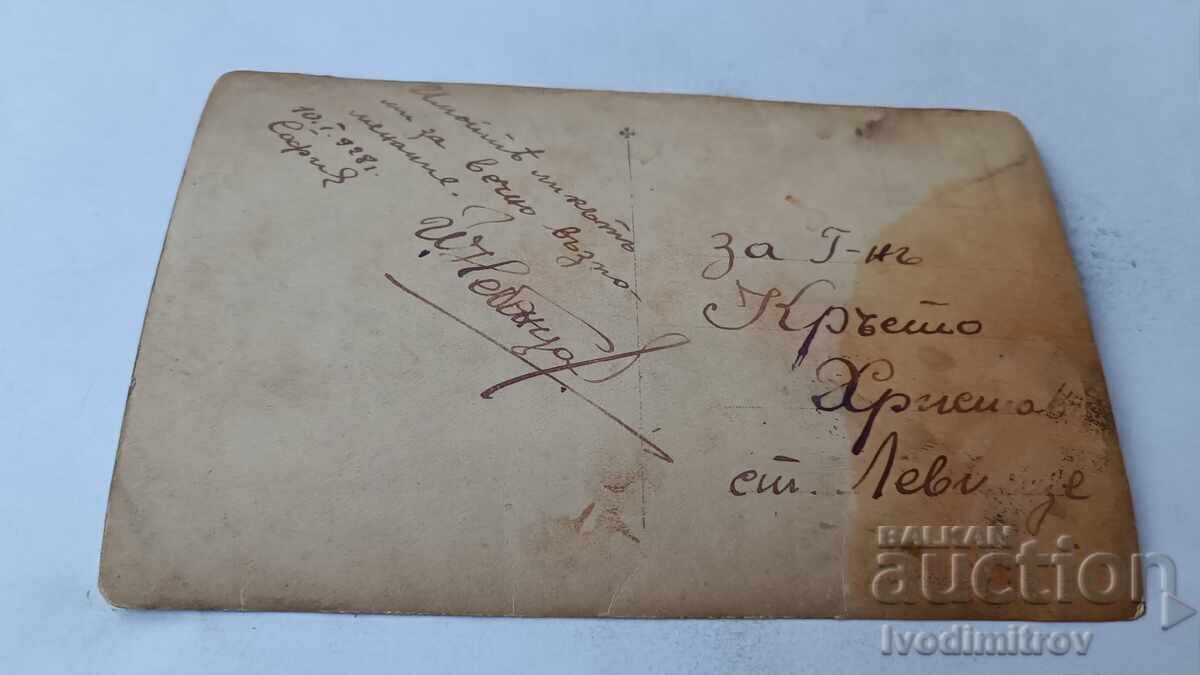 Имайтѣ ликътъ
ми за вечно възпо-
менание.
10.I.928 г.
София
за Г-нъ
Кръсто
Христов
ст. Лев
BALKAN
auction
Ivodimitrov